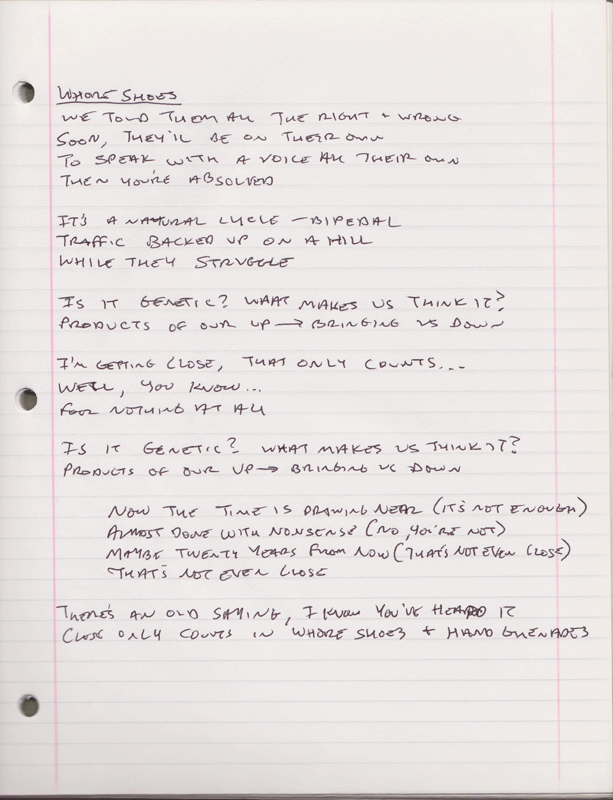 WHORE SHOES
WE TOLD THEM ALL THE RIGHT + WRONG
SOON, THEY'LL BE ON THEIR OWN
TO SPEAK WITH A VOICE ALL THEIR OWN
THEN YOU'RE ABSOLVED
IT'S A NATURAL CYCLE – BIPEDAL
TRAFFIC BACKED UP ON A HILL
WHILE THEY STRUGGLE
IS IT GENETIC? WHAT MAKES US THINK IT?
PRODUCTS OF OUR UP → BRINGING US DOWN
I'M GETTING CLOSE, THAT ONLY COUNTS...
WELL, YOU KNOW...
FOR NOTHING AT ALL
IS IT GENETIC? WHAT MAKES US THINK IT?
PRODUCTS OF OUR UP → BRINGING US DOWN
NOW THE TIME IS DRAWING NEAR (IT'S NOT ENOUGH)
ALMOST DONE WITH NONSENSE (NO, YOU'RE NOT)
MAYBE TWENTY YEARS FROM NOW (THAT'S NOT EVEN CLOSE)
THAT'S NOT EVEN CLOSE
THERE'S AN OLD SAYING, I KNOW YOU'VE HEARD IT
CLOSE ONLY COUNTS IN WHORE SHOES + HAND GRENADES